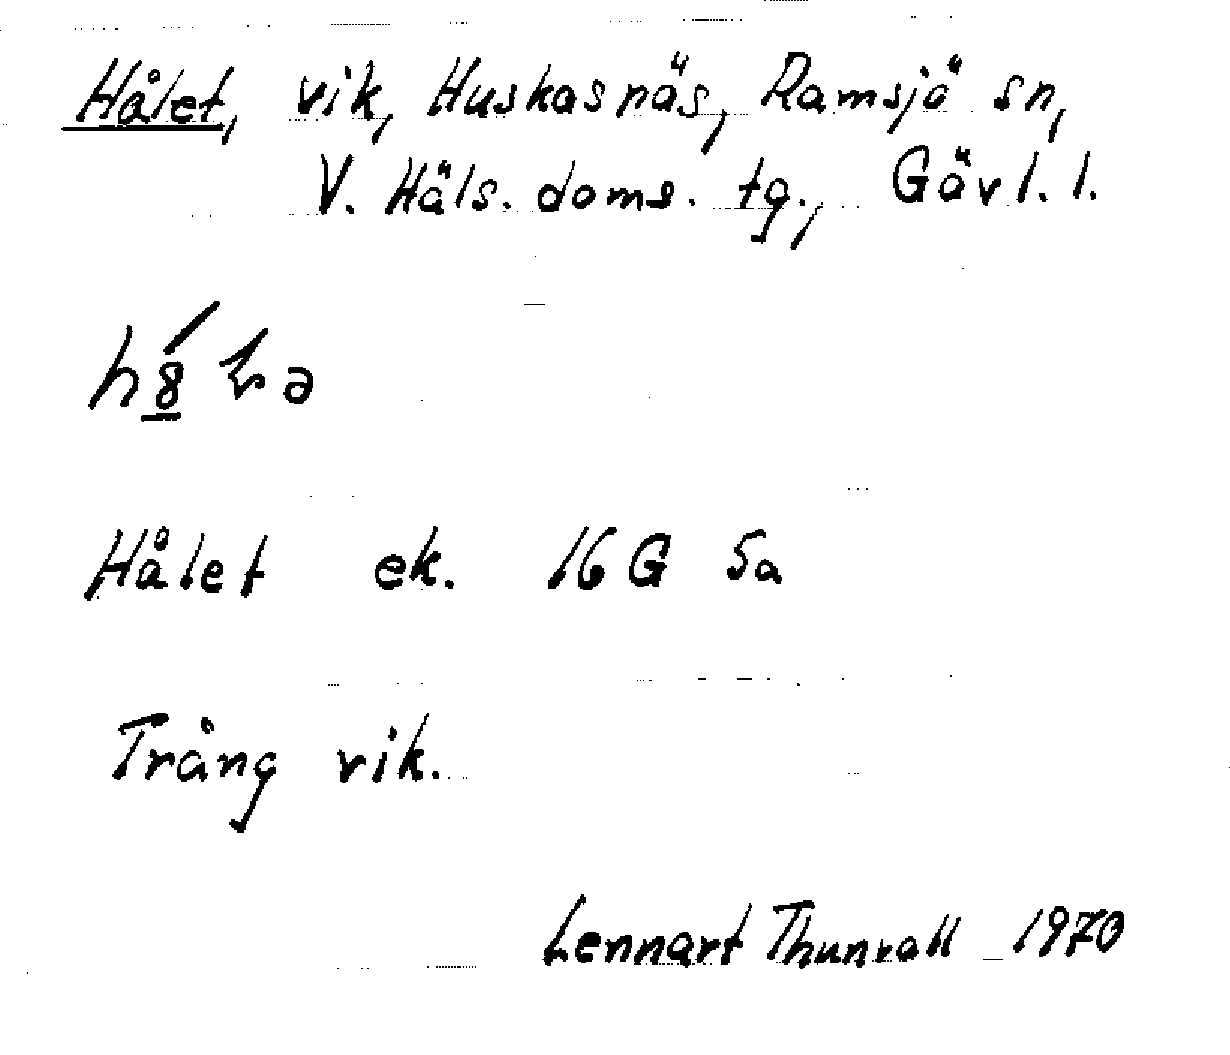 Hålet, vik, Huskasnäs, Ramsjö sn,
V. Häls. doms. tg., Gävl. l.
Hålet ek. 16 G 5a
Trång vik.
Lennart Thunvall 1970